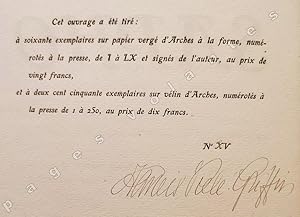 Cet ouvrage a été tiré:
à soixante exemplaires sur papier vergé d'Arches à la forme, numé-
rotés à la presse, de I à LX et signés de l'auteur, au prix de
vingt francs,
et à deux cent cinquante exemplaires sur vélin d'Arches, numérotés à
la presse de 1 à 250, au prix de dix francs.
No XV
Francis Vielé Griffin